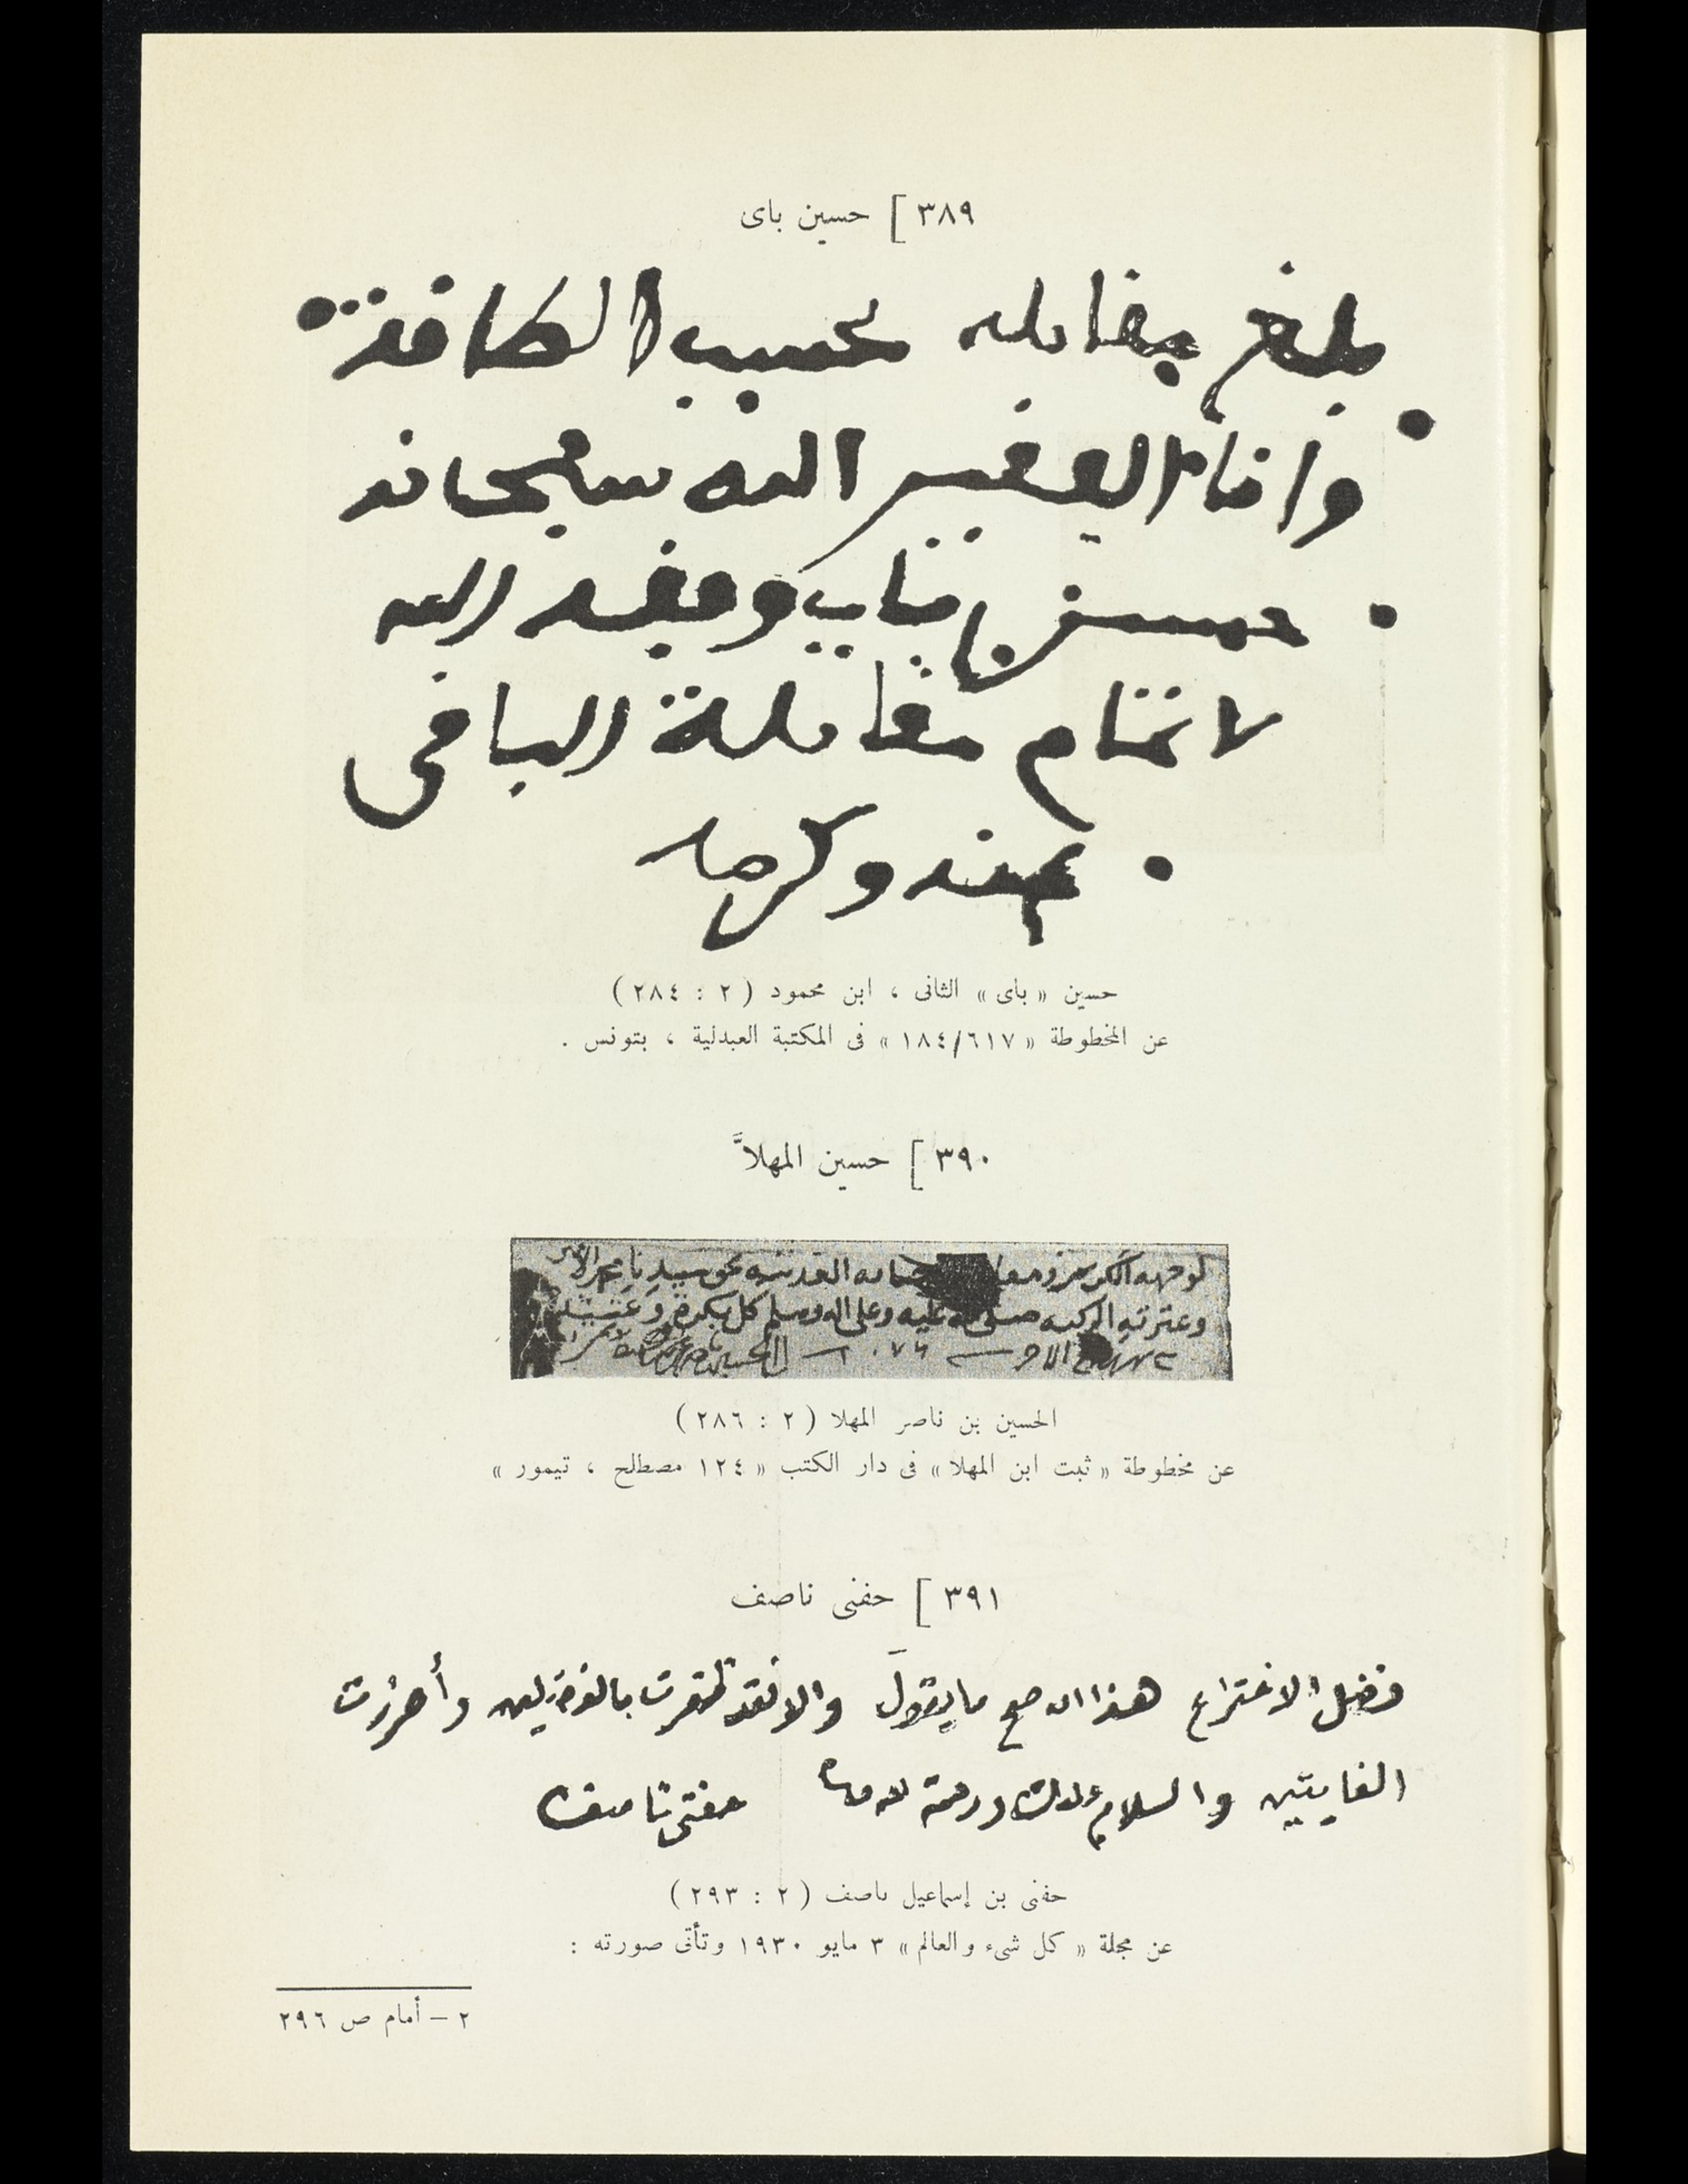 ٣٨٩ [ حسين باى
بلغ مقابله بحسب الطاقة
وانا الفقير الله سبحانه
حسين باي وفقه الله
لاتمام مقابلة الباقى
بمنه وكرمه
حسين « باى » الثانى ، ابن محمود ( ٢ : ٢٨٤ )
عن المخطوطة « ١٨٤/٦١٧ » فى المكتبة العبدلية ، بتونس .
٣٩٠ [ حسين المهلاَّ
لوجهه الكريم نحو سيدنا محمد الأمين
وعترته الزكيه صلى الله عليه وعلى اله وسلم كل بكرة وعشية
الاخر ١٠٧٦
الحسين بن ناصر المهلا ( ٢ : ٢٨٦ )
عن مخطوطة « ثبت ابن المهلا » فى دار الكتب « ١٢٤ مصطلح ، تيمور »
٣٩١ [ حفنى ناصف
فضل الاختراع هذا ان صح ما يقول والا فقد ظفرت بالفضيلتين وأحرزت
الغايتين والسلام عليك ورحمة الله حفنى ناصف
حفنى بن إسماعيل ناصف ( ٢ : ٢٩٣ )
عن مجلة « كل شىء والعالم » ٣ مايو ١٩٣٠ وتأتى صورته :
٢ – أمام ص ٢٩٦